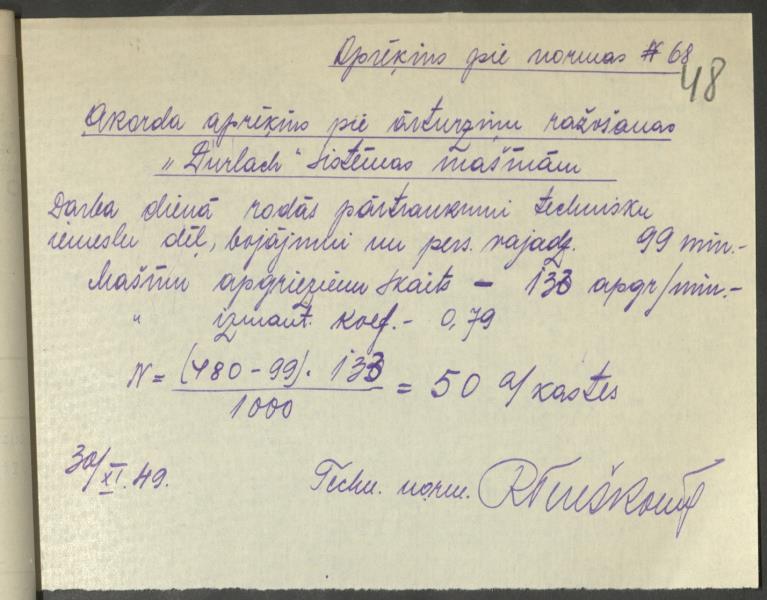 Aprēķins pie normas # 68
48
Akorda aprēķins pie ražošanas
„Durlach" sistēmas mašīnām
Darba dienā rodās pārtraukumi technisku
iemeslu dēļ, bojājumi un pers. vajadz. 99 min.-
Mašīnu apgriezienu skaits - 133 apgr/min.-
" izmant. koef. - 0,79
N = (480 - 99) · 133 / 1000 = 50 a/kastes
30/XI.49.
Techn. norm.